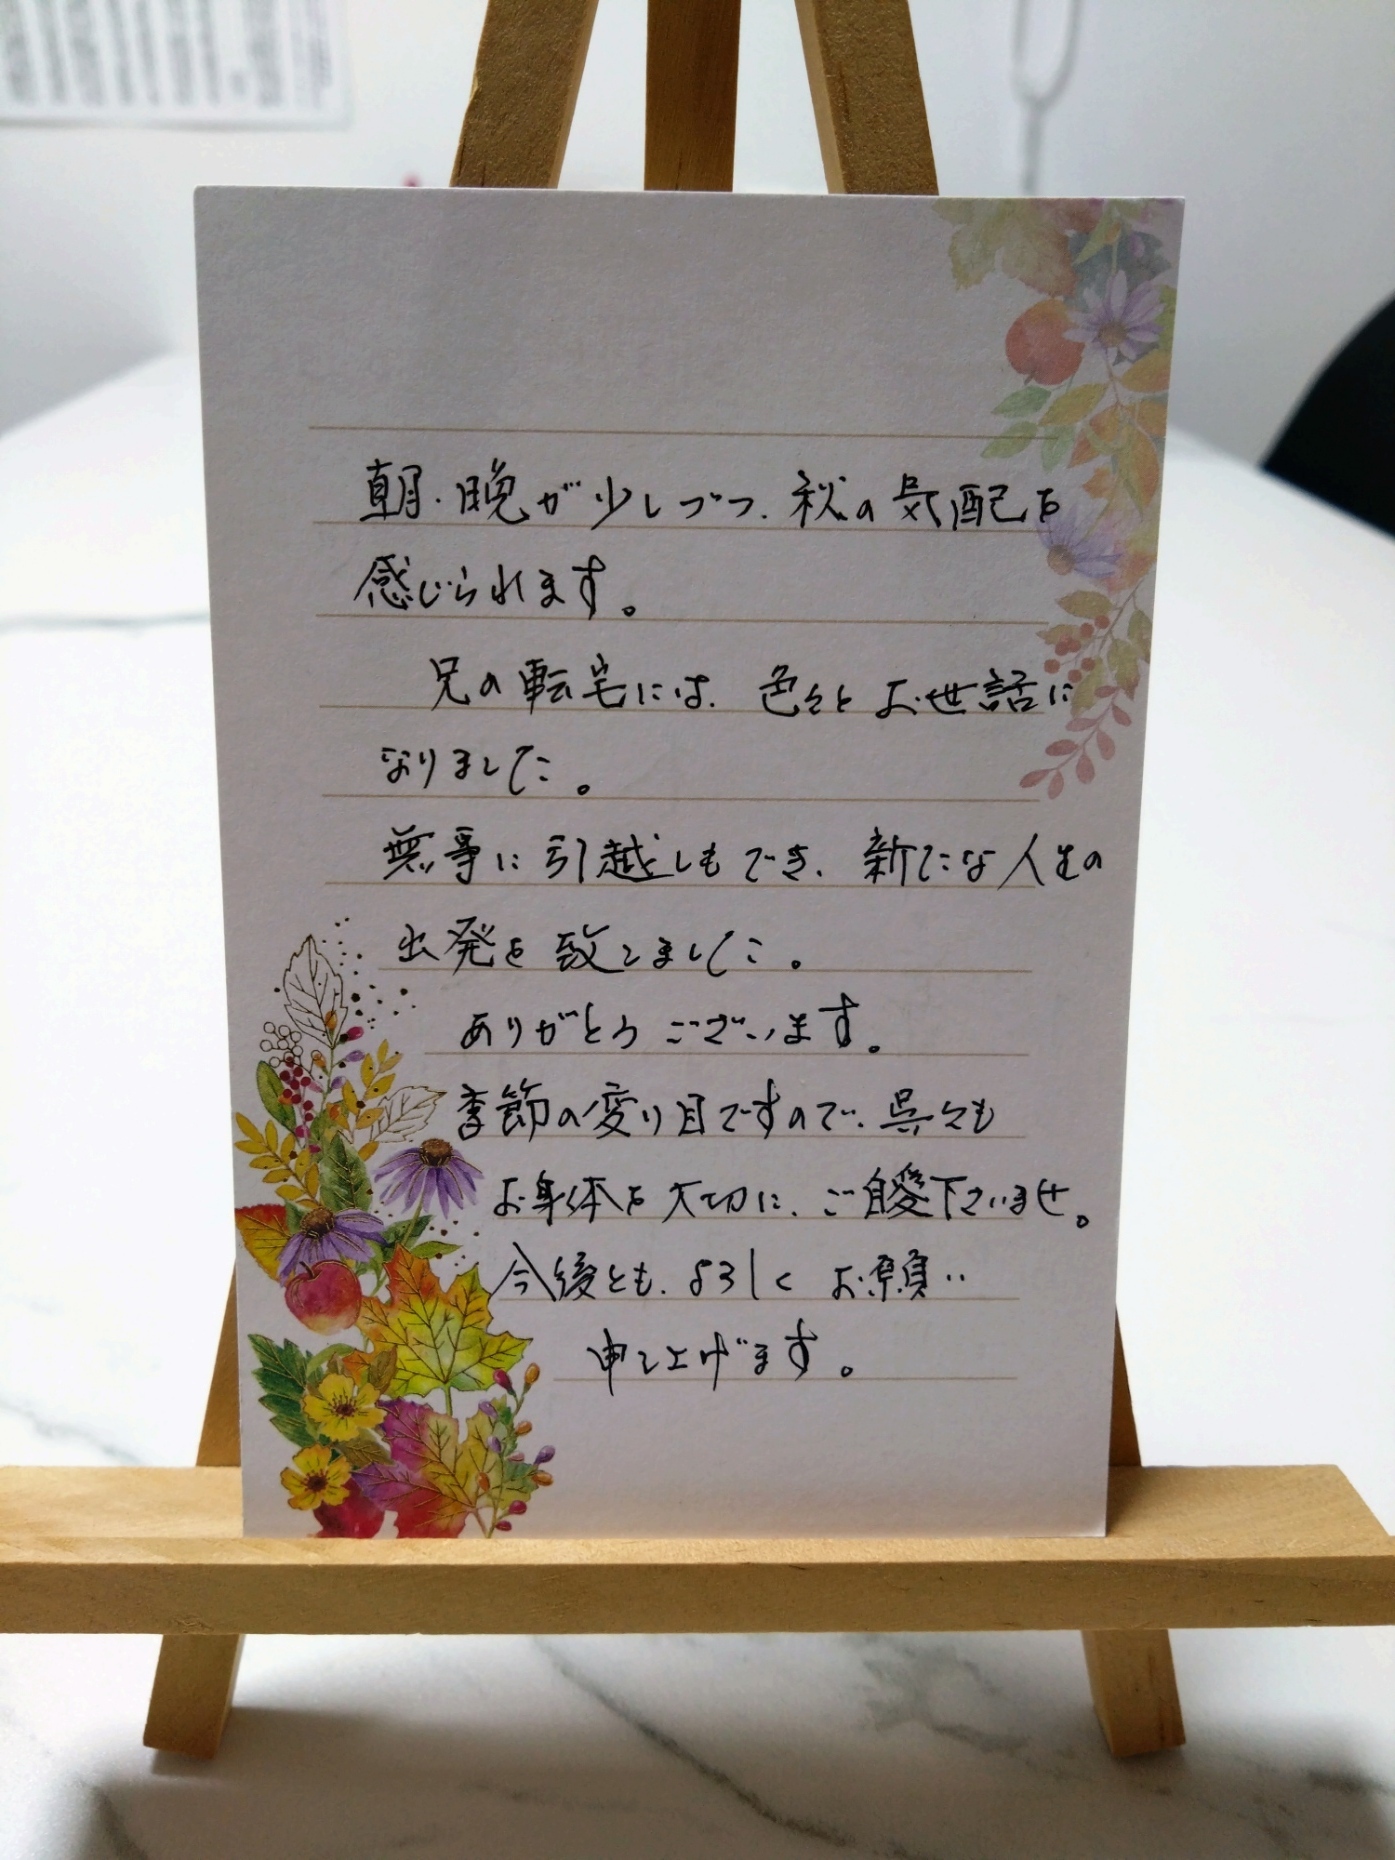 朝・晩が少しづつ、秋の気配を
感じられます。
兄の転宅には、色々とお世話に
なりました。
無事に引越しもでき、新たな人生の
出発を致しました。
ありがとうございます。
季節の変り目ですので、呉々も
お身体を大切に、ご自愛下さいませ。
今後とも、よろしくお願い
申し上げます。